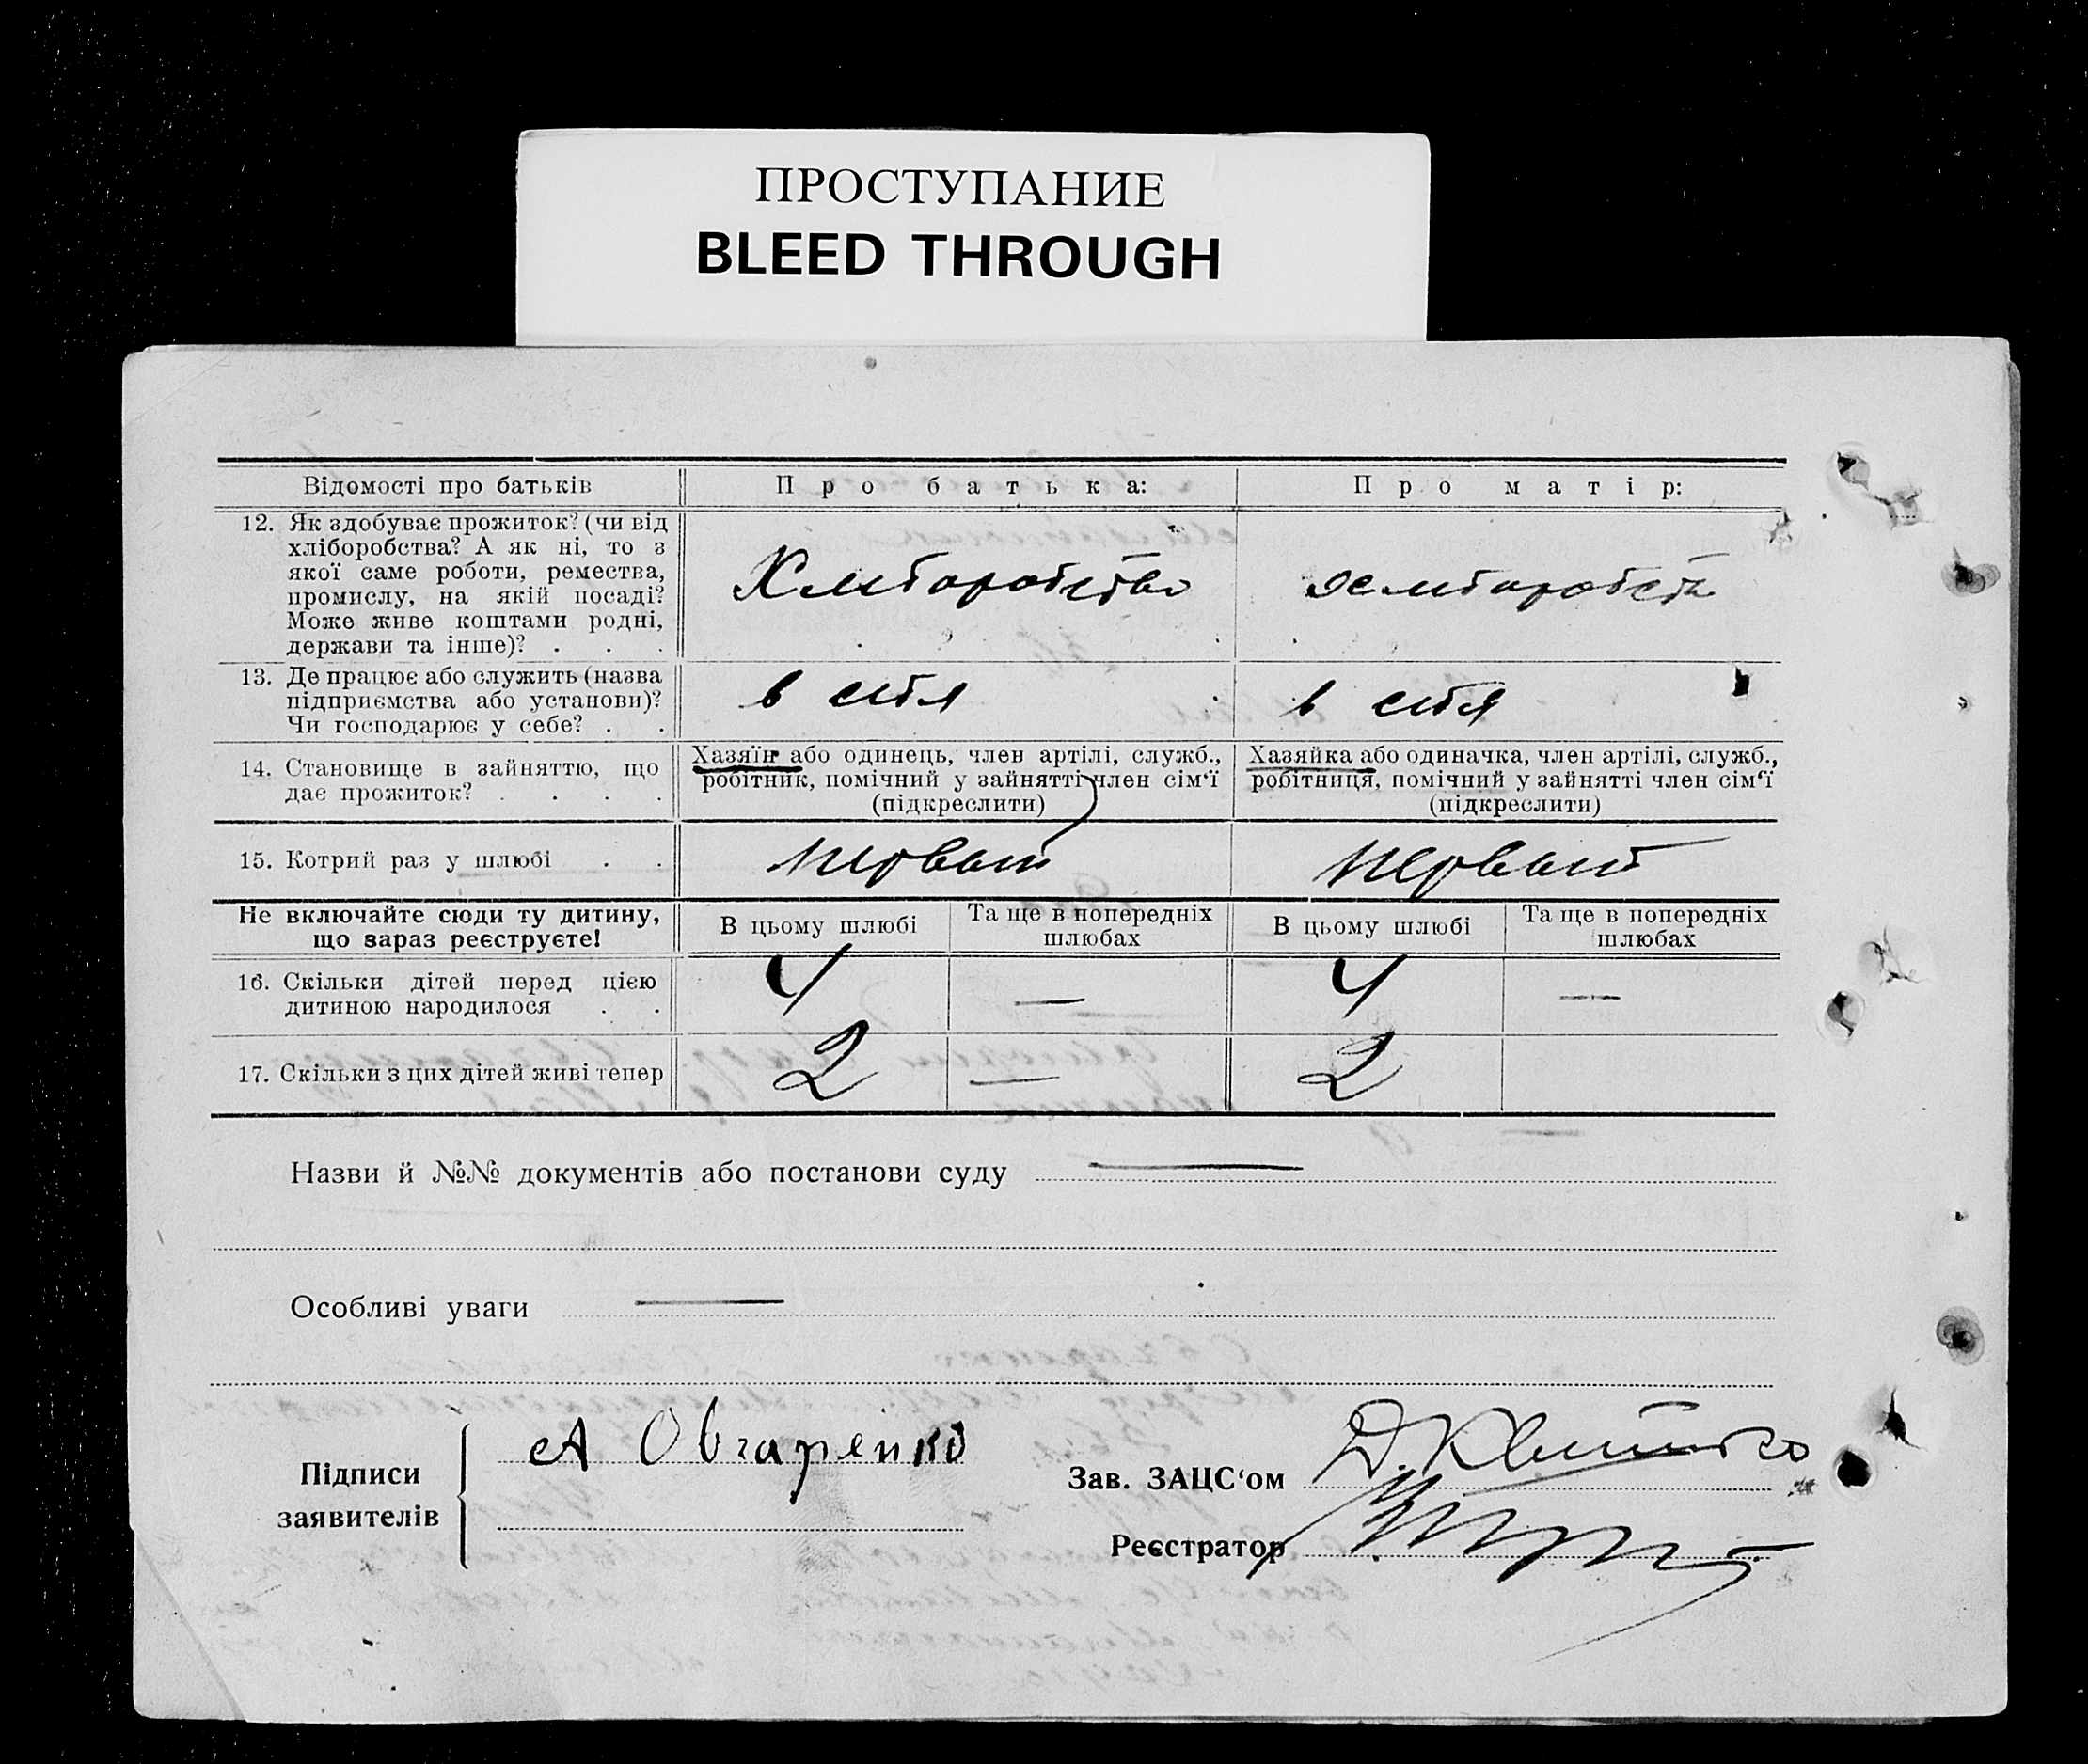 ПРОСТУПАНИЕ
BLEED THROUGH
Відомості про батьків
Про батька:
Про матір:
12. Як здобуває прожиток? (чи від
хліборобства? А як ні, то з
якої саме роботи, ремества,
промислу, на якій посаді?
Може живе коштами родні,
держави та інше)? . . .
Хліборобство
хліборобств
13. Де працює або служить (назва
підприємства або установи)?
Чи господарює у себе? . .
в себя
в себя
14. Становище в зайняттю, що
дає прожиток? . . . .
Хазяїн або одинець, член артілі, служб.,
робітник, помічний у зайнятті член сім'ї
(підкреслити)
Хазяйка або одиначка, член артілі, служб.,
робітниця, помічний у зайнятті член сім'ї
(підкреслити)
15. Котрий раз у шлюбі . .
первый
первый
Не включайте сюди ту дитину,
що зараз реєструєте!
В цьому шлюбі
Та ще в попередніх
шлюбах
В цьому шлюбі
Та ще в попередніх
шлюбах
16. Скільки дітей перед цією
дитиною народилося . .
4
—
4
—
17. Скільки з цих дітей живі тепер
2
—
2
Назви й №№ документів або постанови суду —
Особливі уваги —
Підписи
заявителів
А Овчаренко
Зав. ЗАЦС'ом
Реєстратор